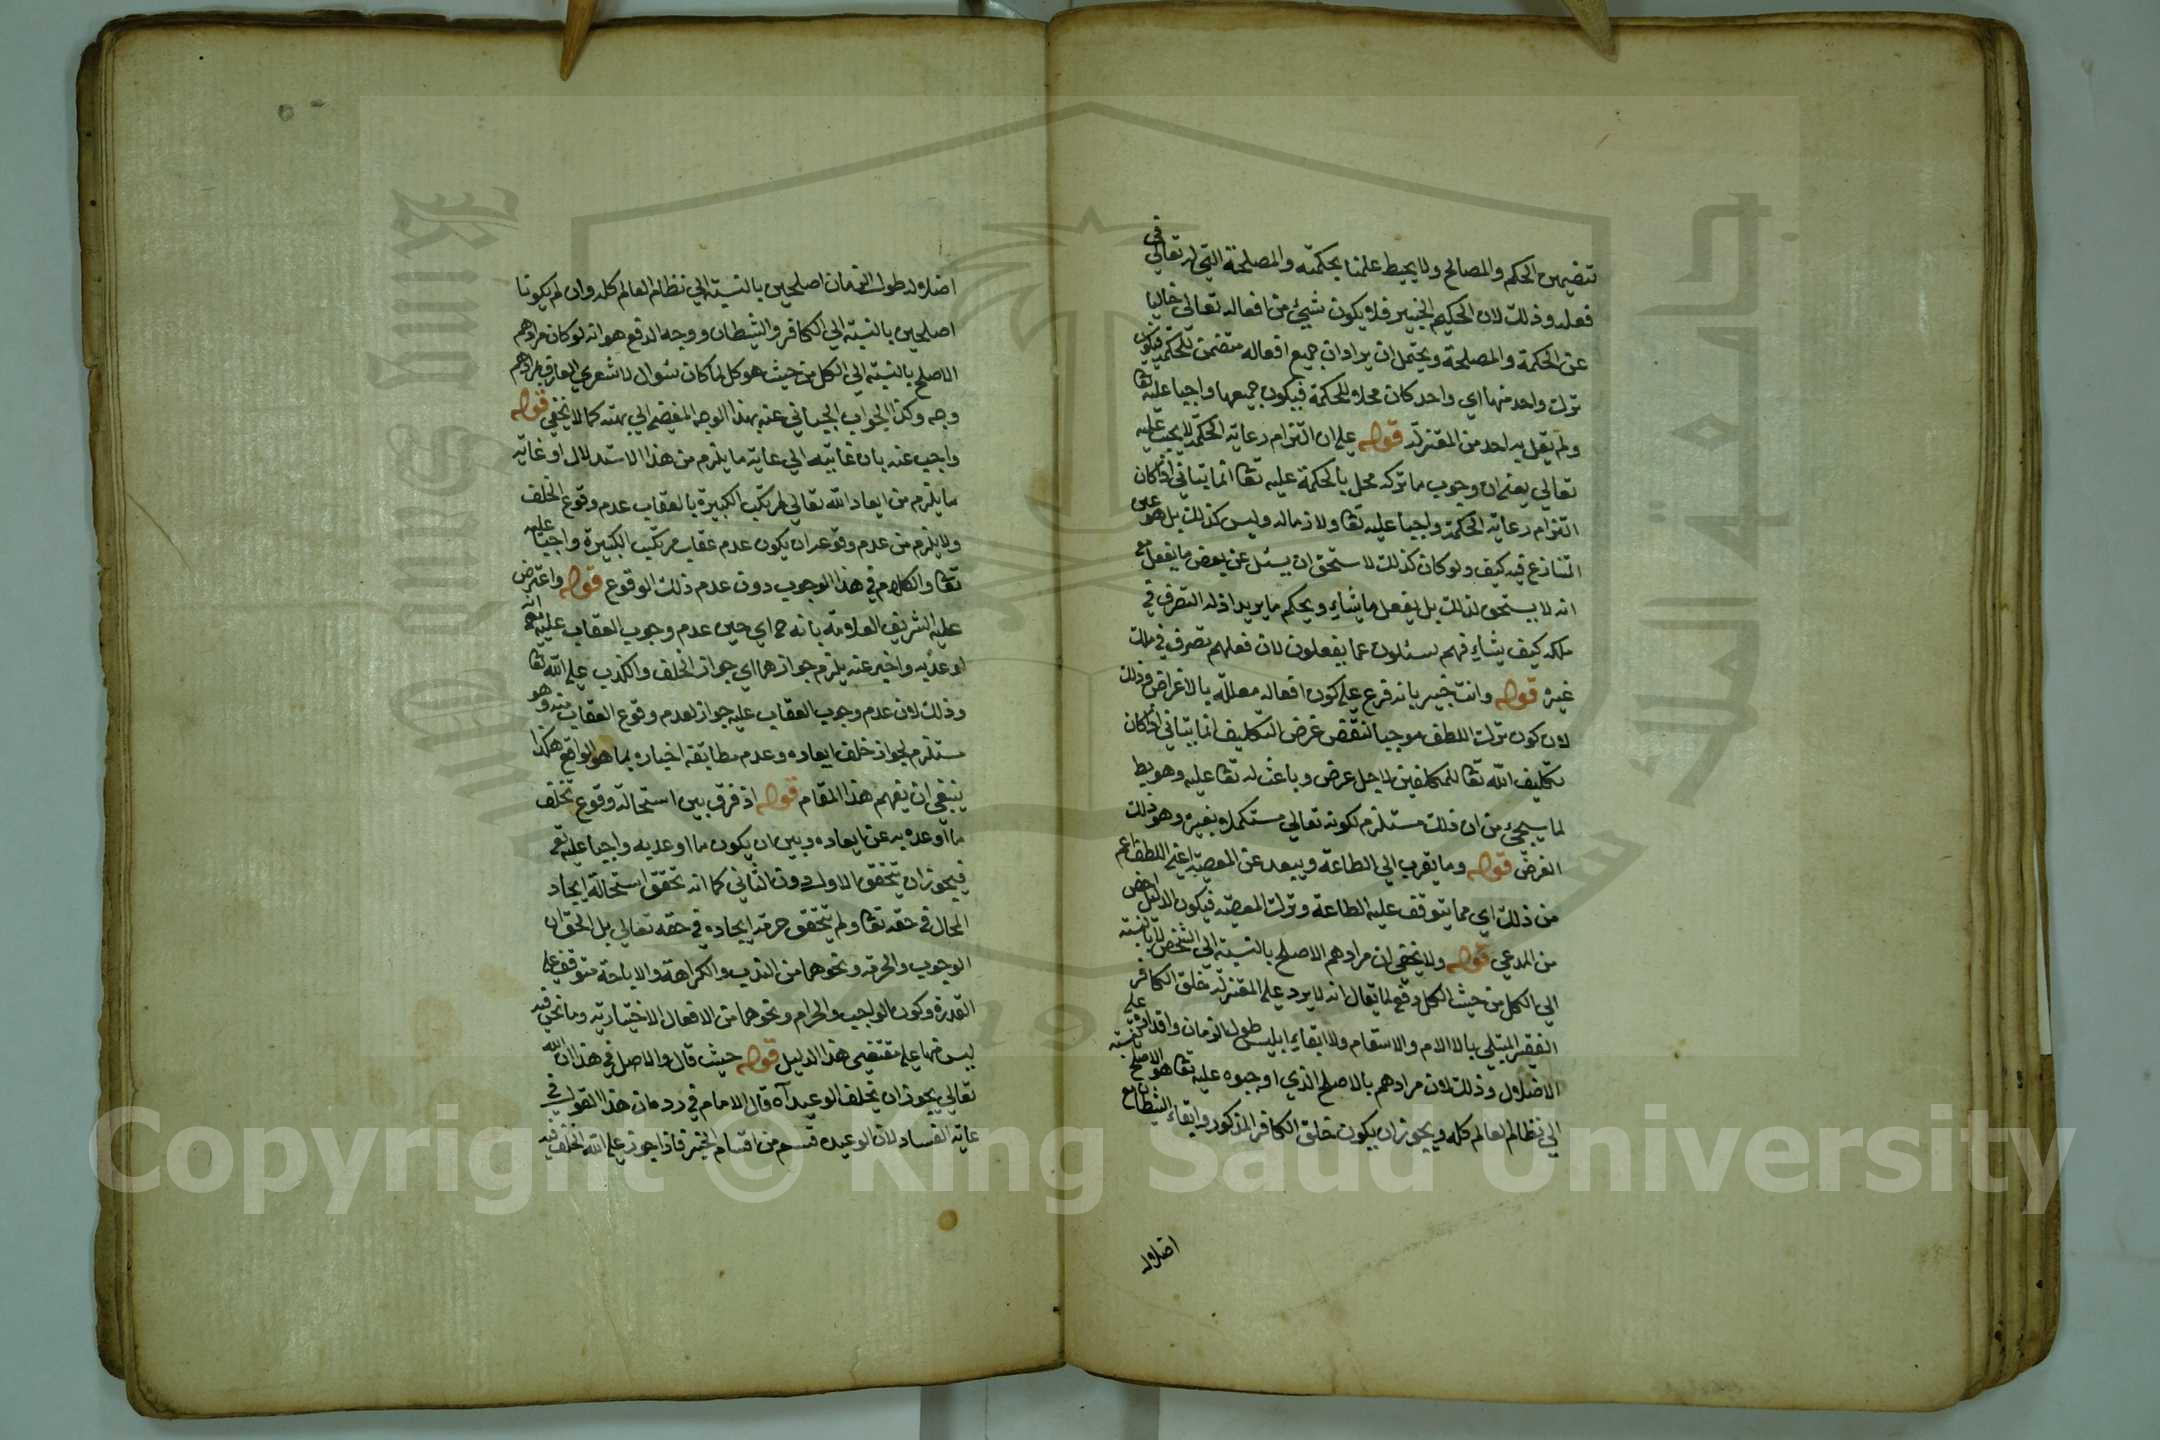 تتضمن الحكم والمصالح ولا يحيط علمنا بحكمته والمصلحة التي له تعالى في
فعله وذلك لان الحكيم الخبير فلا يكون شيئ من افعاله تعالى خاليا
عن الحكمة والمصلحة ويحتمل ان يراد ان جميع افعاله متضمن للحكمة فيكون
ترك واحد منها اي واحد كان مخلا للحكمة فيكون جميعها واجبا عليه تعا
ولم يقل به احد من المعتزلة قوله على ان التزام رعاية الحكمة لا يجب عليه
تعالى يعني ان وجوب ما تركه مخل بالحكمة عليه تعا انما يتاتى اذا كان
التزام رعاية الحكمة واجبا عليه تعا ولازما له وليس كذلك بل هو عين
التنازع فيه كيف ولو كان كذلك لاستحق ان يسئل عن بعض ما يفعل مع
انه لا يستحق لذلك بل يفعل ما يشاء ويحكم ما يريد اذ له التصرف في
ملكه كيف يشاء فهم يسئلون عما يفعلون لان فعلهم تصرف في ملك
غيره قوله وانت خبير بانه فرع على كون افعاله معللة بالاغراض وذلك
لان كون ترك اللطف موجبا لنقض غرض التكليف انما يتاتى اذا كان
تكليف الله تعا للمكلفين لاجل غرض وباعث له تعا عليه وهو بط
لما سيجيء من ان ذلك مستلزم لكونه تعالى مستكملا بغيره وهو ذلك
الغرض قوله وما يقرب الى الطاعة ويبعد عن المعصية اعني اللطف اعم
من ذلك اي مما يتوقف عليه الطاعة وترك المعصية فيكون الدليل اخص
من المدعي قوله ولا يخفى ان مرادهم الاصلح بالنسبة الى الشخص لا بالنسبة
الى الكل من حيث الكل دفع لما يقال انه لا يرد على المعتزلة خلق الكافر
الفقير المبتلي بالالام والاسقام ولا ابقاء ابليس طول الزمان واقداره على
الاضلال وذلك لان مرادهم بالاصلح الذي اوجبوه عليه تعا هو الاصلح بالنسبة
الى نظام العالم كله ويجوز ان يكون خلق الكافر المذكور وابقاء الشيطان مع
اضلاله
اضلاله طول الزمان اصلحين بالنسبة الى نظام العالم كله وان لم يكونا
اصلحين بالنسبة الى الكافر والشيطان ووجه الدفع هو انه لو كان مرادهم
الاصلح بالنسبة الى الكل من حيث هو كل لما كان لسؤال الاشعري العارف بمرادهم
وجه وكذا لجواب الجبائي عنه بهذا الوجه المفضي الى بهته كما لا يخفى قوله
واجيب عنه بان غايته الى غاية ما يلزم من هذا الاستدلال او غاية
ما يلزم من ايعاد الله تعالى لمرتكب الكبيرة بالعقاب عدم وقوع الخلف
ولا يلزم من عدم وقوعه ان يكون عدم عقاب مرتكب الكبيرة واجبا عليه
تعا والكلام في هذا الوجوب دون عدم ذلك الوقوع قوله واعترض
عليه الشريف العلامة بانه ح اي حين عدم وجوب العقاب عليه مع انه
اوعد به واخبر عنه يلزم جوازهما اي جواز الخلف والكذب على الله تعا
وذلك لان عدم وجوب العقاب عليه جواز لعدم وقوع العقاب منه وهو
مستلزم لجواز خلف ايعاده وعدم مطابقة اخباره بما هو الواقع هكذا
ينبغي ان يفهم هذا المقام قوله اذ فرق بين استحالة وقوع تخلف
ما اوعده به عن ايعاده وبين ان يكون ما اوعد به واجبا عليه تع
فيجوز ان يتحقق الاول دون الثاني كما انه تحقق استحالة ايجاد
المحال في حقه تعا ولم يتحقق حرمة ايجاده في حقه تعالى بل الحق ان
الوجوب والحرمة ونحوهما من الندب والكراهة والاباحة متوقف على
القدرة وكون الواجب والحرام ونحوهما من الافعال الاختيارية وما نحن فيه
ليس منها على مقتضى هذا الدليل قوله حيث قال والاصل في هذا ان الله
تعالى يجوز ان يخلف الوعيد آه قال الامام في رد هذا القول في
غاية الفساد لان الوعيد قسم من اقسام الخبر فاذا جوز على الله الخلف فيه
Copyright © King Saud University